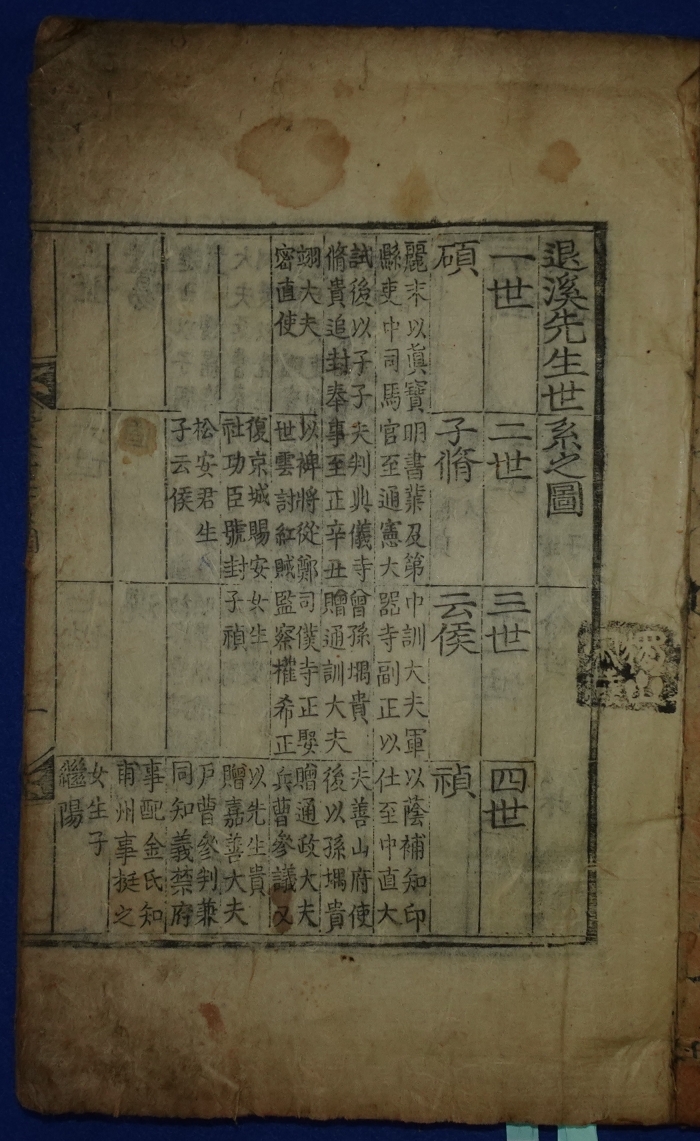 退溪先生世系之圖
一世
碩
麗末以眞寶
縣吏中司馬
試後以子子
脩貴追封奉
翊大夫
密直使
二世
子脩
明書業及第
官至通憲大
夫判典儀寺
事至正辛丑
以裨將從鄭
世雲討紅賊
復京城賜安
社功臣號封
松安君生
子云侯
三世
云侯
中訓大夫軍
器寺副正以
曾孫堣貴
贈通訓大夫
司僕寺正娶
監察權希正
女生
子禎
四世
禎
以蔭補知印
仕至中直大
夫善山府使
後以孫堣貴
贈通政大夫
兵曹參議又
以先生貴
贈嘉善大夫
戶曹參判兼
同知義禁府
事配金氏知
甫州事挺之
女生子
繼陽